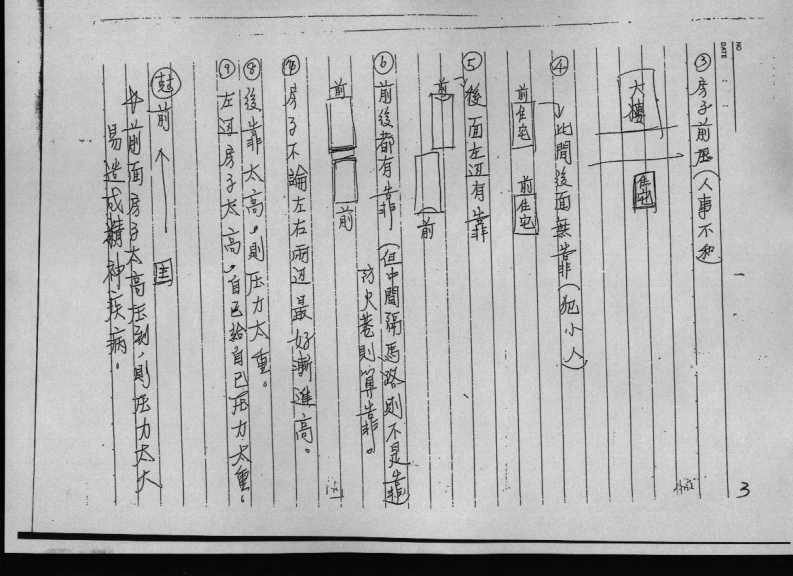 NO
DATE
3
③房子前压(人事不和)
大樓
住宅
④
此間後面無靠(犯小人)
前住宅
前住宅
⑤後面左边有靠
前
前
⑥前後都有靠(但中間隔馬路則不是靠)
防火巷則算靠。
前
前
⑦房子不論左右兩边最好漸進高。
⑧後靠太高,則压力太重。
⑨左边房子太高。自己給自己压力太重。
前
前面房子太高压到,則压力太大
易造成精神疾病。